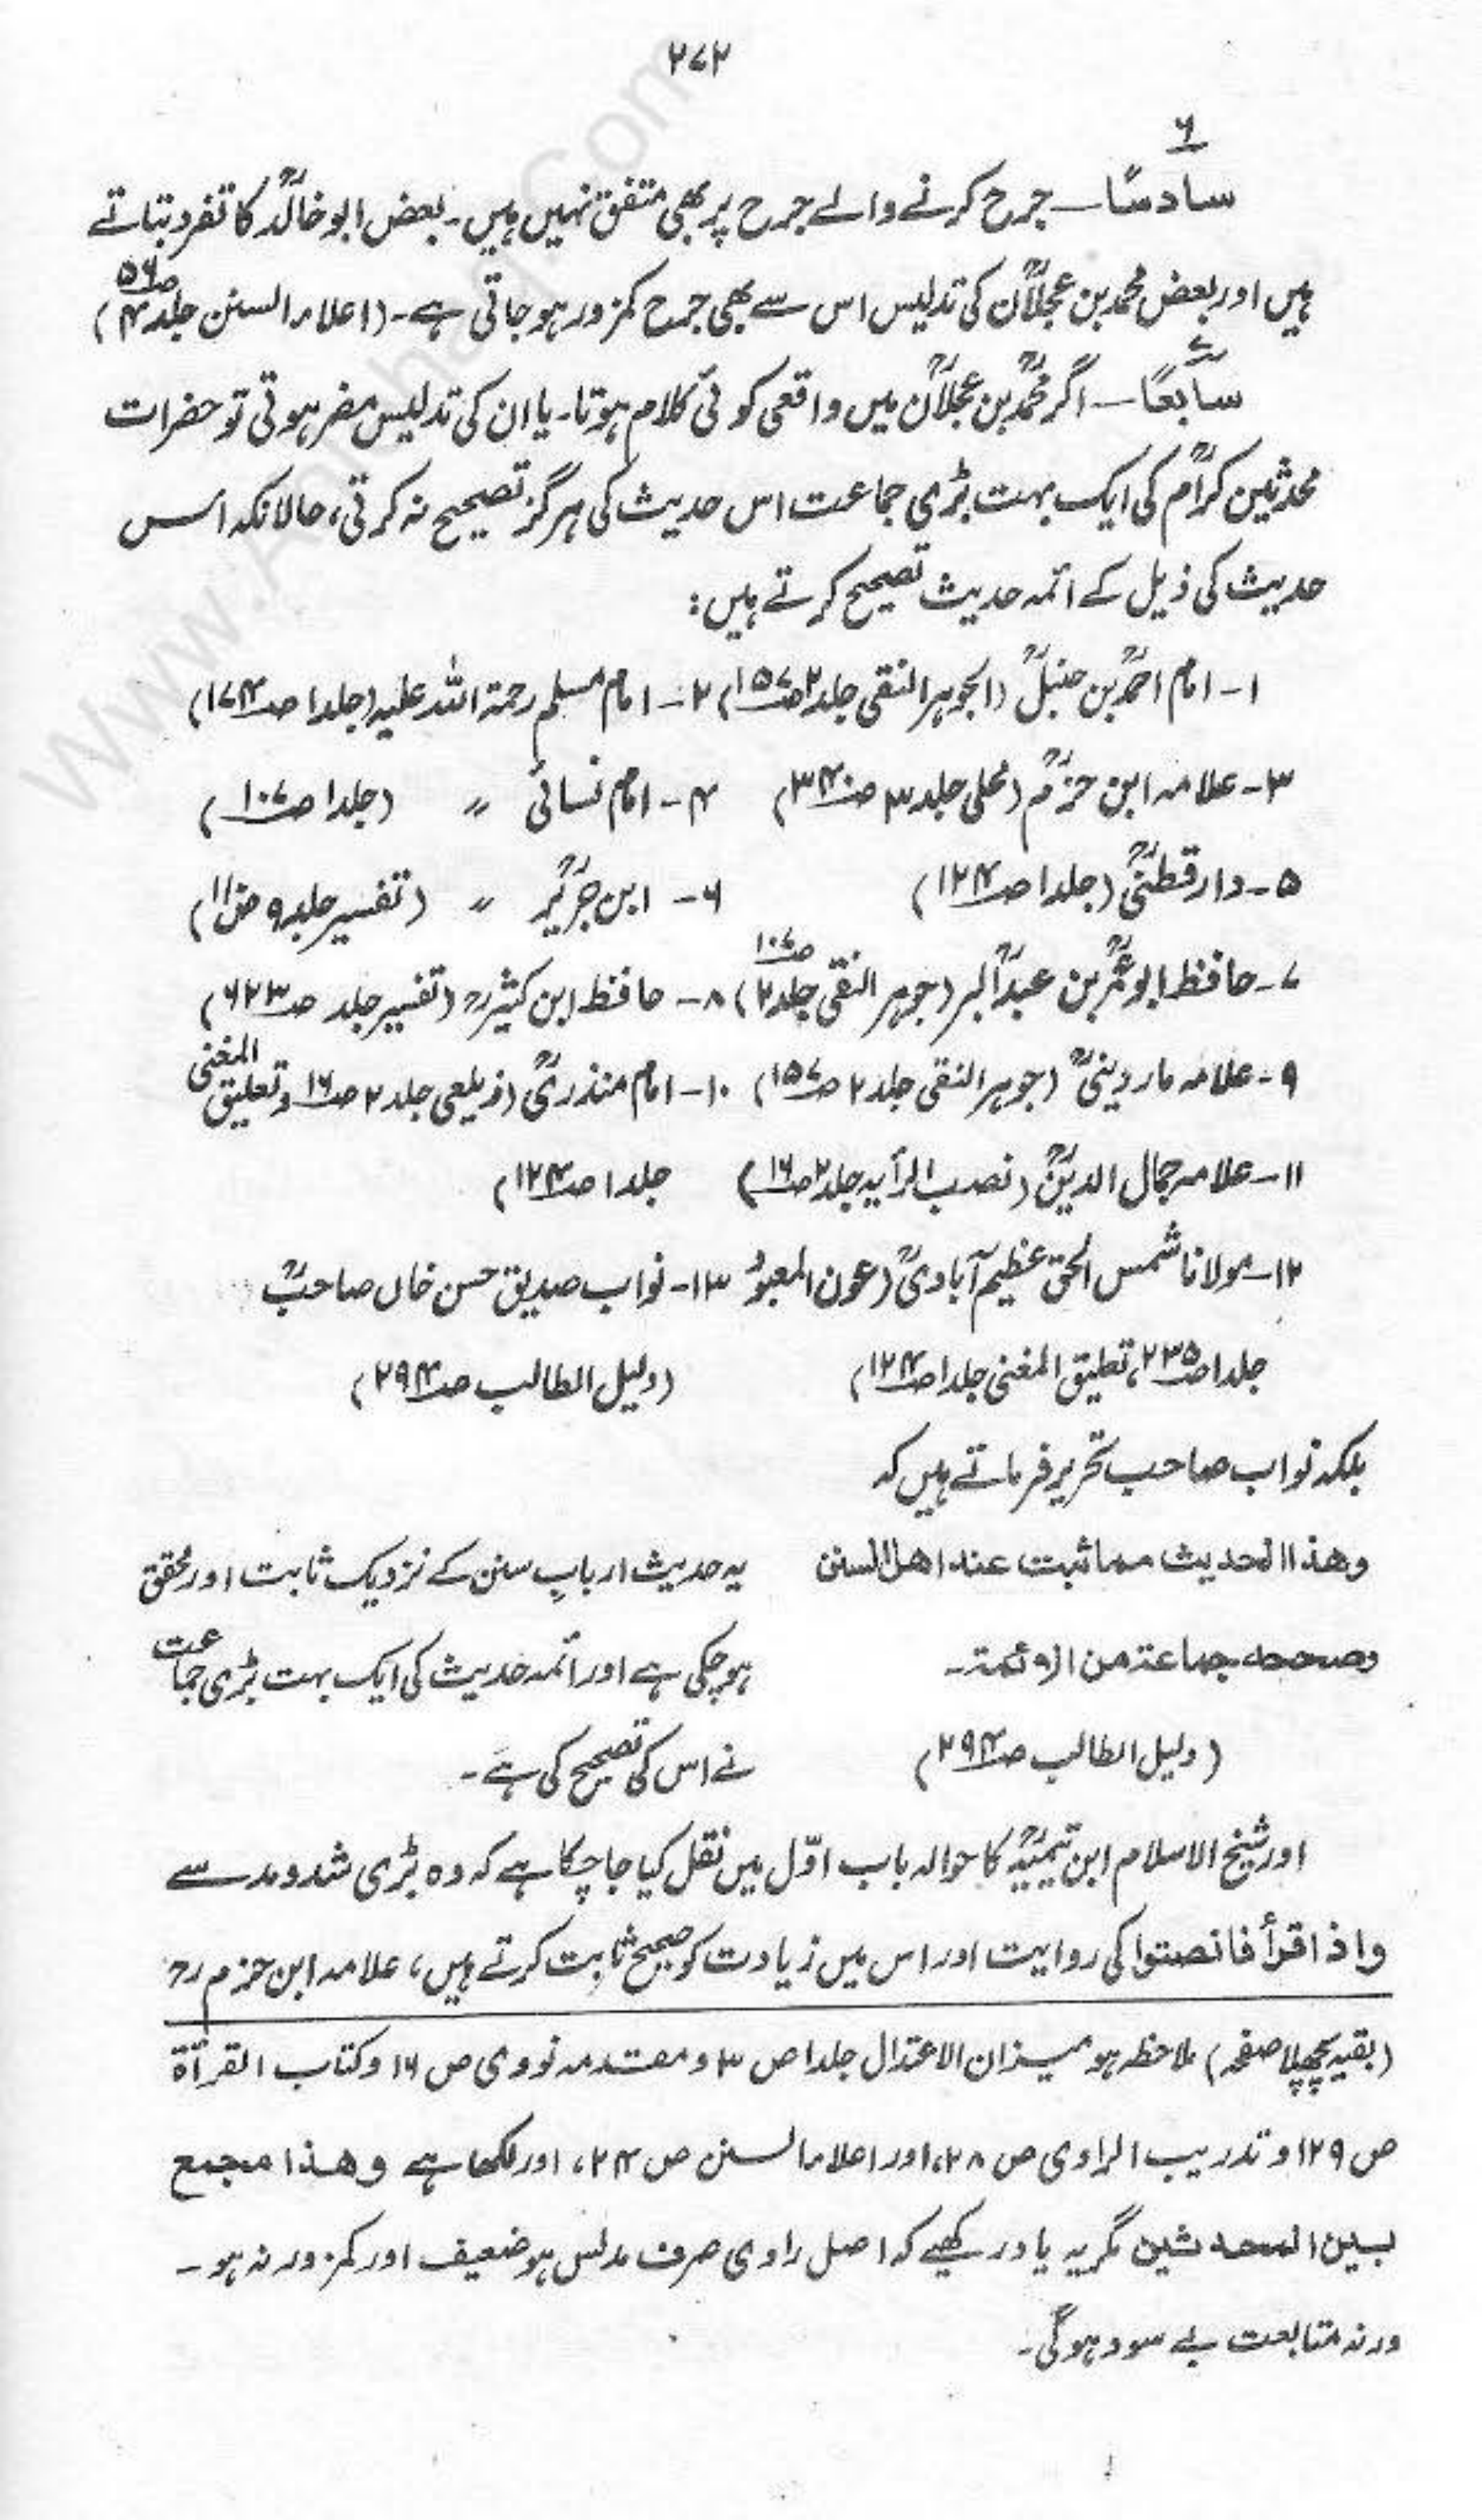 ۲۷۲
۶
سادسًا — جرح کرنے والے جرح پر بھی متفق نہیں ہیں۔ بعض ابو خالدؒ کا تفرد بتاتے
ہیں اور بعض محمد بن عجلانؒ کی تدلیس اس سے بھی جرح کمزور ہو جاتی ہے۔ (اعلاء السنن جلد ۴ ص۵۶)
۷
سابعًا — اگر محمدؒ بن عجلانؒ میں واقعی کوئی کلام ہوتا۔ یا ان کی تدلیس مضر ہوتی تو حضرات
محدثین کرامؒ کی ایک بہت بڑی جماعت اس حدیث کی ہرگز تصحیح نہ کرتی، حالانکہ اس
حدیث کی ذیل کے ائمہ حدیث تصحیح کرتے ہیں:
۱- امام احمدؒ بن حنبلؒ (الجوہر النقی جلد ۲ ص۱۵۷) ۲- امام مسلم رحمۃ اللہ علیہ (جلد ۱ ص۱۷۴)
۳- علامہ ابن حزمؒ (محلی جلد ۳ ص۳۴۰) ۴- امام نسائی ؒ (جلد ۱ ص۱۰۷)
۵- دارقطنیؒ (جلد ۱ ص۱۲۴) ۶- ابن جریرؒ ؒ (تفسیر جلد ۹ ص۱۱۰)
۷- حافظ ابو عمرؒ بن عبدالبرؒ (جوہر النقی جلد ۲ ص۱۰۷) ۸- حافظ ابن کثیرؒ (تفسیر جلد ص۶۲۳)
۹- علامہ ماردینیؒ (جوہر النقی جلد ۲ ص۱۵۷) ۱۰- امام منذریؒ (زیلعی جلد ۲ ص۱۶ و تعلیق المغنی
۱۱- علامہ جمال الدینؒ (نصب الرأیہ جلد ۲ ص۱۶) جلد ۱ ص۱۲۴)
۱۲- مولانا شمس الحق عظیم آبادیؒ (عون المعبود ۱۳- نواب صدیق حسن خاں صاحبؒ
جلد ۱ ص۲۳۵، تعلیق المغنی جلد ۱ ص۱۲۴) (دلیل الطالب ص۲۹۴)
بلکہ نواب صاحب تحریر فرماتے ہیں کہ
وھذا الحدیث مما ثبت عند اھل السنن یہ حدیث اربابِ سنن کے نزدیک ثابت اور محقق
وصححہ جماعۃ من الائمۃ۔ ہو چکی ہے اور ائمہ حدیث کی ایک بہت بڑی جماعت
(دلیل الطالب ص۲۹۴) نے اس کی تصحیح کی ہے۔
اور شیخ الاسلام ابن تیمیہؒ کا حوالہ باب اوّل میں نقل کیا جا چکا ہے کہ وہ بڑی شد و مد سے
واذا قرأ فانصتوا کی روایت اور اس میں زیادت کو صحیح ثابت کرتے ہیں، علامہ ابن حزمؒ
(بقیہ پچھلا صفحہ) ملاحظہ ہو میزان الاعتدال جلد ۱ ص ۳ و مقدمہ نووی ص ۱۶ و کتاب القرأۃ
ص ۱۲۹ و تدریب الراوی ص ۲۸، اور اعلاء السنن ص ۲۴، اور لکھا ہے وھذا مجمع
بین المحدثین مگر یہ یاد رکھیے کہ اصل راوی صرف مدلس ہو ضعیف اور کمزور نہ ہو۔
ورنہ متابعت بے سود ہوگی۔